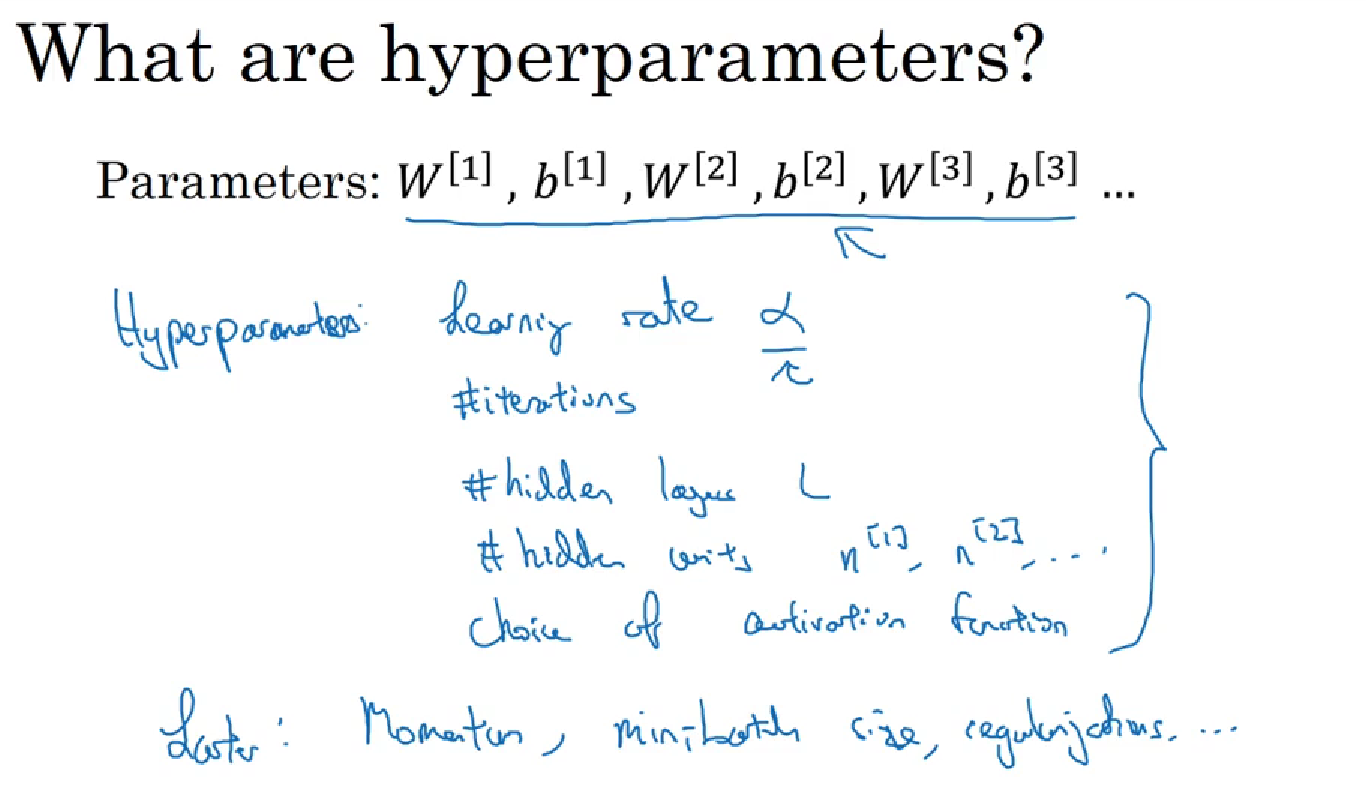 What are hyperparameters?
Parameters: W^[1], b^[1], W^[2], b^[2], W^[3], b^[3] ...
Hyperparameters: Learning rate α
#iterations
#hidden layers L
# hidden units n^[1], n^[2], ....
choice of activation function
Later: Momentum, mini-batch size, regularizations, ...